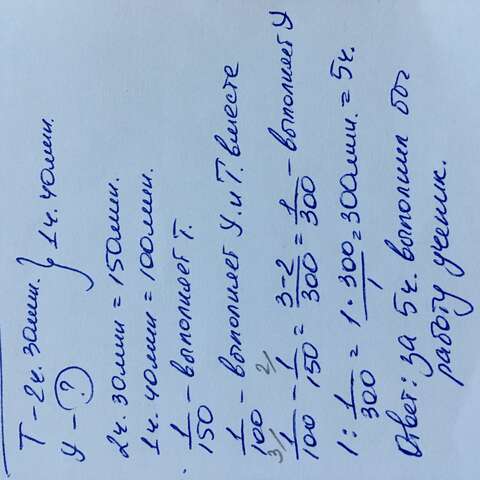 Т – 2ч. 30мин. } 1ч. 40мин.
У – ?
2ч. 30мин = 150мин.
1ч. 40мин = 100мин.
1/150 – выполняет Т.
1/100 – выполняет У. и Т. вместе
3/ 1/100 – 2/ 1/150 = 3-2/300 = 1/300 – выполняет У
1 : 1/300 = 1·300/1 = 300мин. = 5ч.
Ответ: за 5ч. выполнил бы
работу ученик.